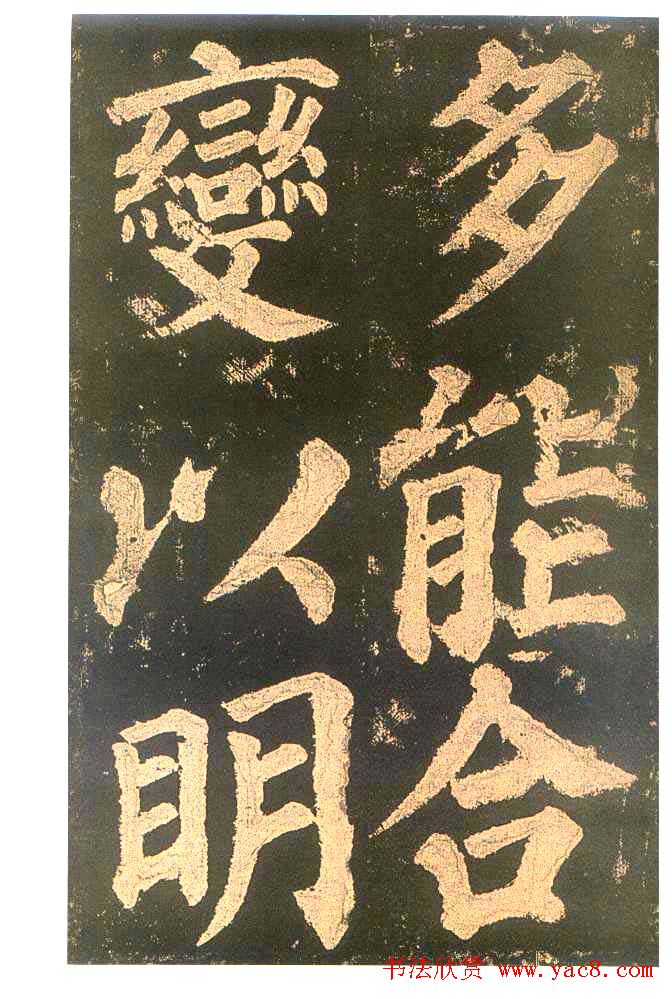 多能合
變以明
书法欣赏 www.yac8.com